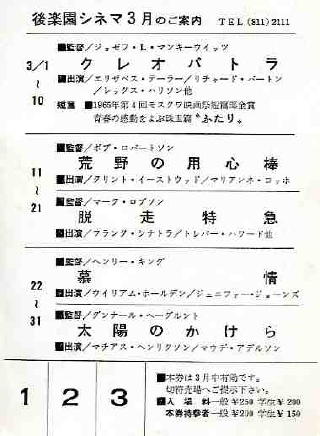 後楽園シネマ3月のご案内 TEL (811) 2111
3/1
~
10
■監督/ジョゼフ・L・マンキーウイッツ
クレオパトラ
■出演/エリザベス・テーラー/リチャード・バートン
/レックス・ハリソン他
短篇 ■1965年第4回モスクワ映画祭短篇部金賞
青春の感動をよぶ珠玉篇〝ふたり〟
11
~
21
■監督/ボブ・ロバートソン
荒野の用心棒
■出演/クリント・イーストウッド/マリアンネ・コッホ
■監督/マーク・ロブソン
脱走特急
■出演/フランク・シナトラ/トレバー・ハワード他
22
~
31
■監督/ヘンリー・キング
慕情
■出演/ウイリアム・ホールデン/ジェニファー・ジョーンズ
■監督/グンナール・ヘーグルント
太陽のかけら
■出演/マチアス・ヘンリクソン/マウデ・アデルソン
1 2 3
■本券は3月中有効です。
切符売場へご提示下さい。
■入場料一般¥250 学生¥200
本券持参者一般¥200 学生¥150